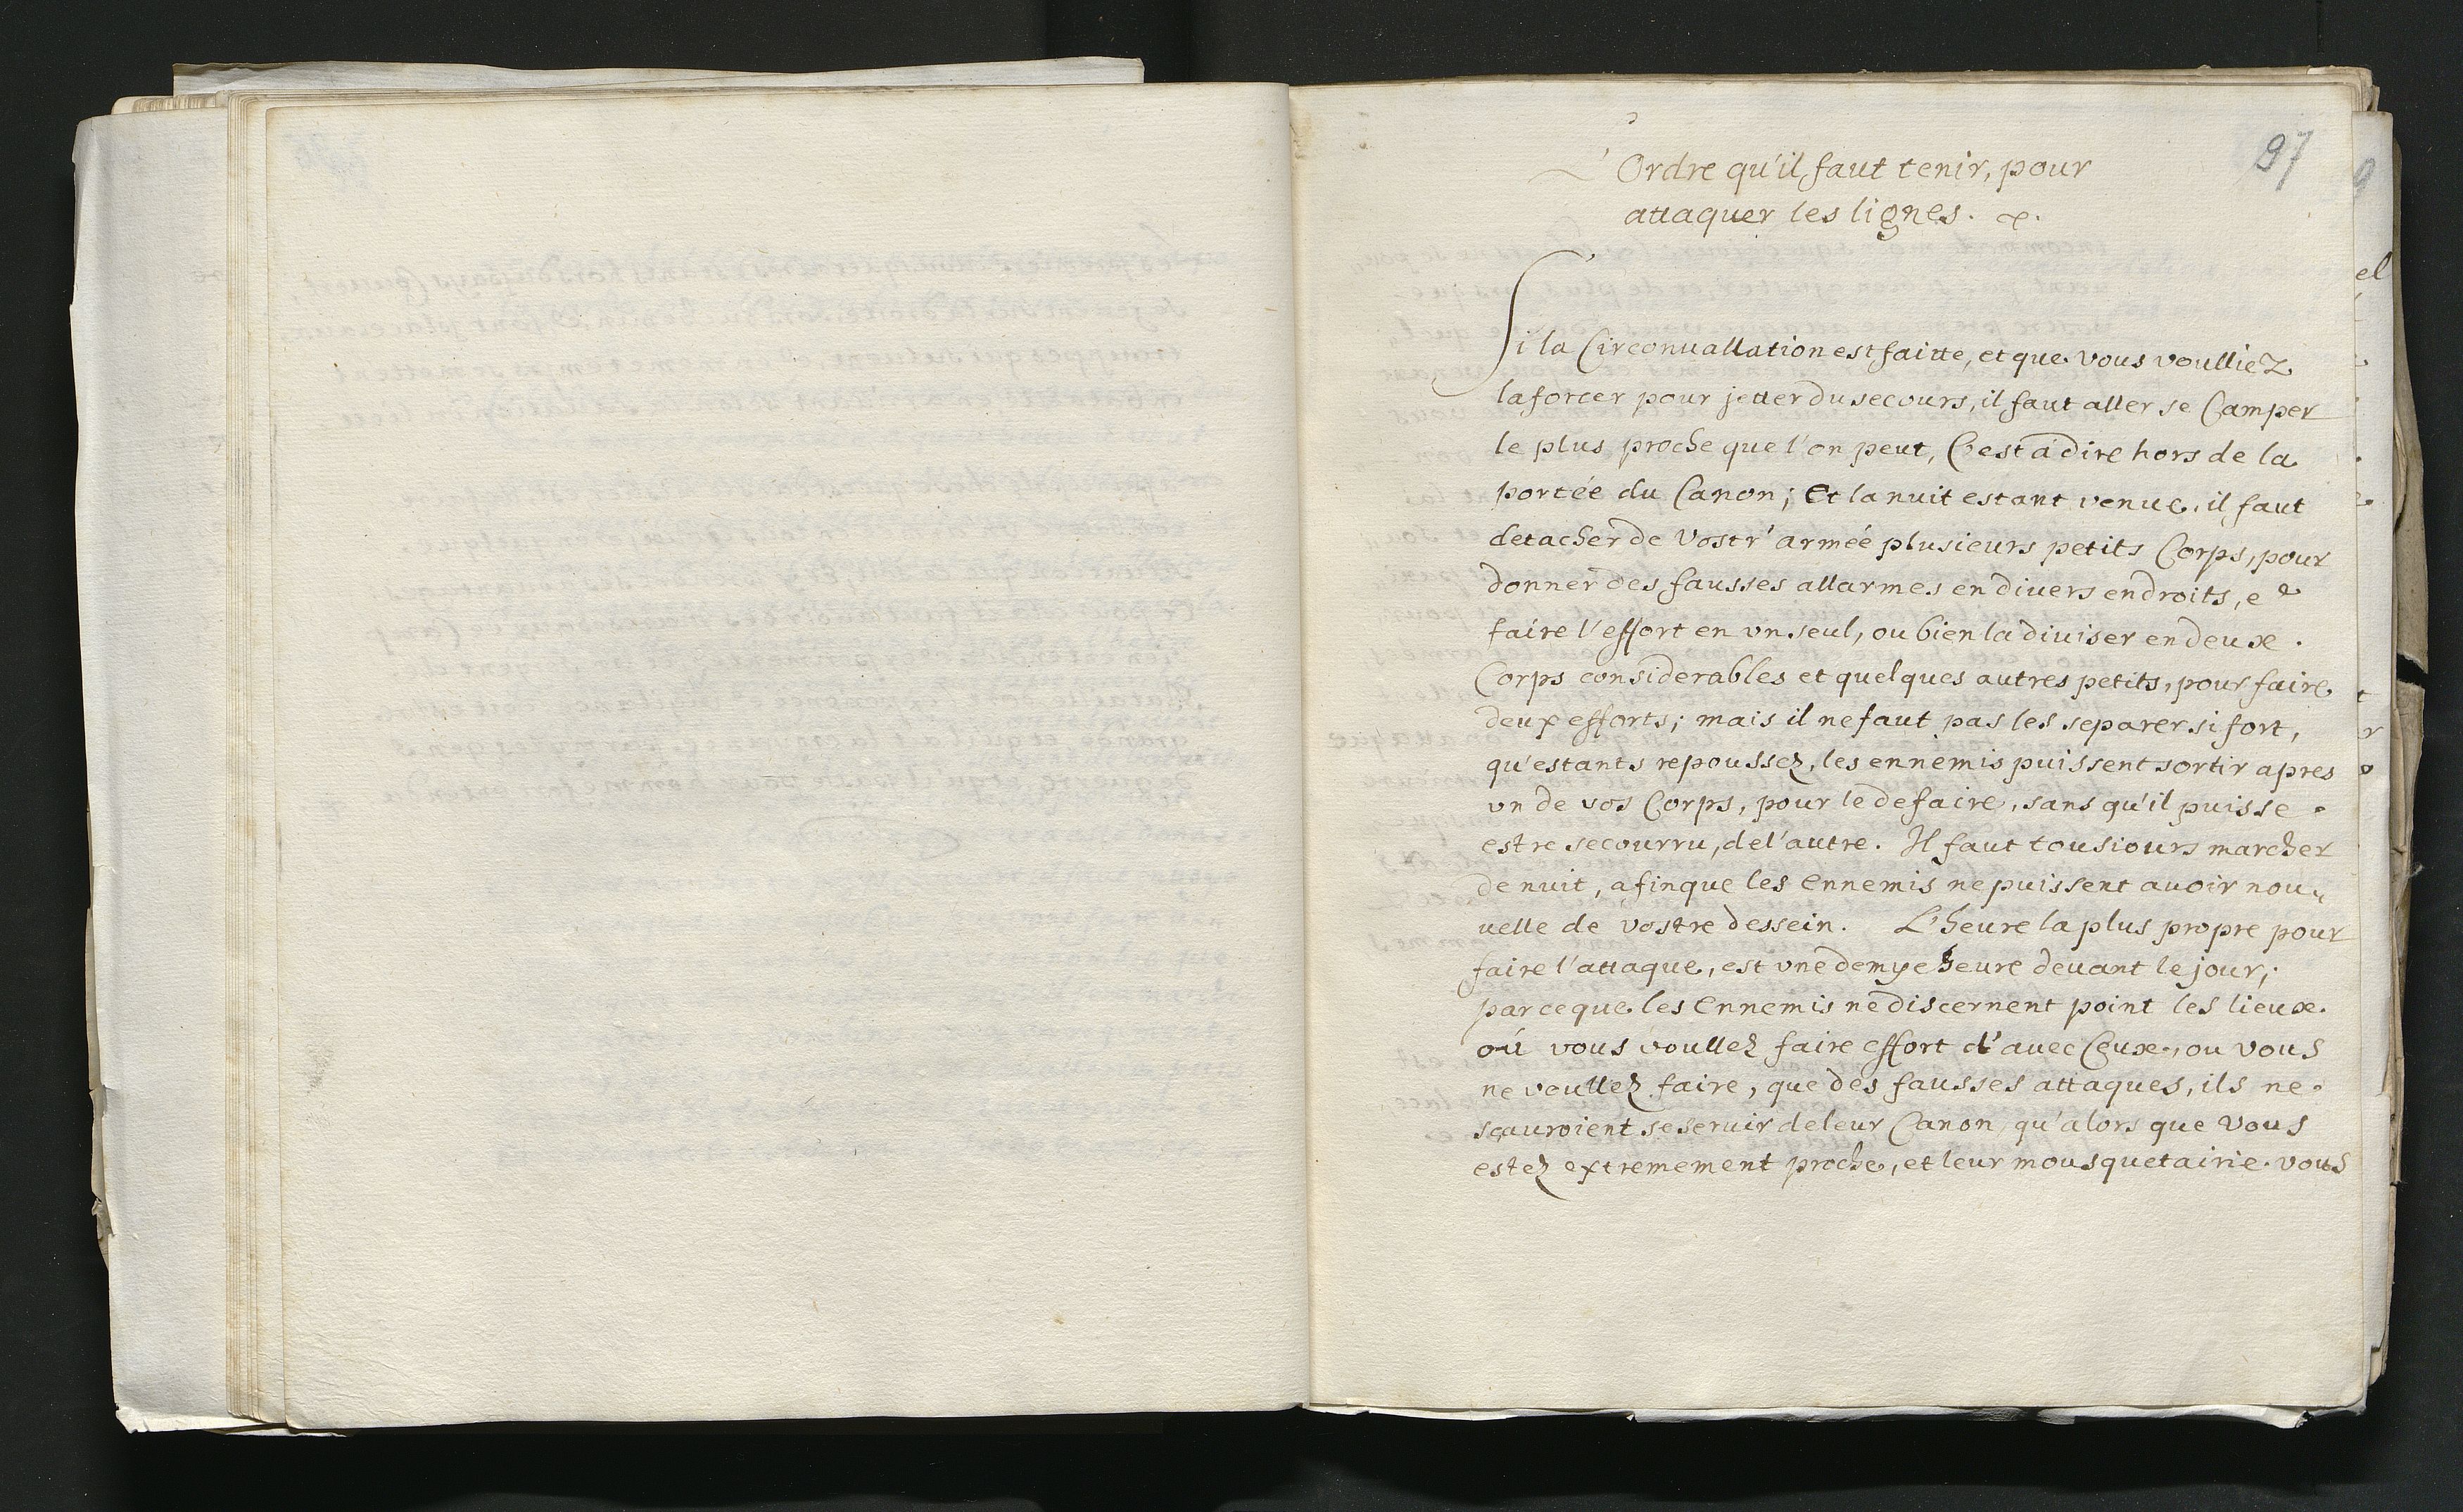 97
L'Ordre qu'il faut tenir, pour
attaquer les lignes.
Si la Circonuallation est faitte, et que vous voulliez
la forcer pour jetter du secours, il faut aller se Camper
le plus proche que l'on peut, C'est à dire hors de la
portée du Canon; Et la nuit estant venue, il faut
detacher de Vostr' armée plusieurs petits Corps, pour
donner des fausses allarmes en divers endroits, et
faire l'effort en vn seul, ou bien la diuiser en deux
Corps considerables et quelques autres petits, pour faire
deux efforts; mais il ne faut pas les separer si fort,
qu'estants repoussez, les ennemis puissent sortir apres
vn de vos Corps, pour le defaire, sans qu'il puisse
estre secourru, de l'autre. Il faut tousiours marcher
de nuit, afinque les Ennemis ne puissent auoir nou„
uelle de vostre dessein. L'heure la plus propre pour
faire l'attaque, est vne demye heure deuant le jour;
parceque les Ennemis ne discernent point les lieux
où vous voullez faire effort d'auec Ceux, ou vous
ne voullez faire, que des fausses attaques, ils ne
sçauroient se seruir de leur Canon, qu'alors que vous
estez extremement proche, et leur mousquetairie vous